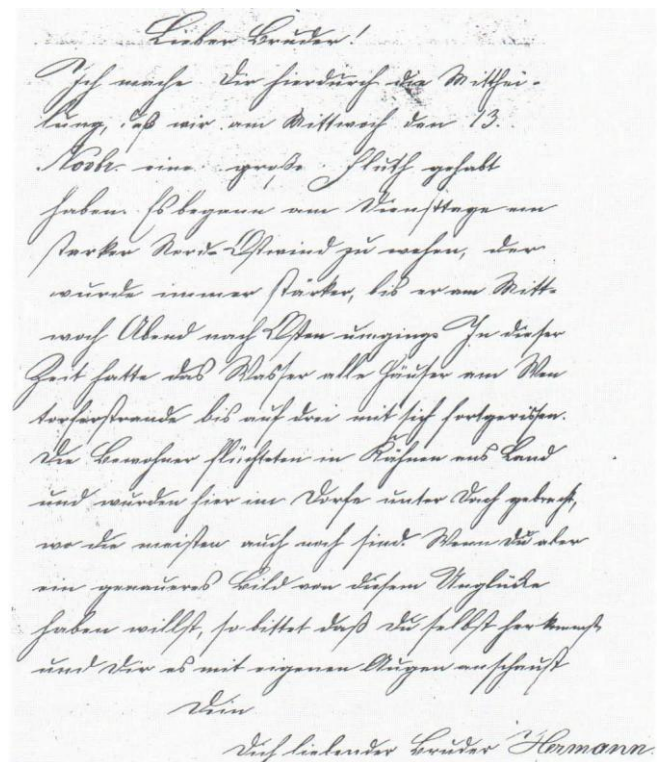 Lieber Bruder!
Ich mache Dir hierdurch die Mitthei-
lung, daß wir am Mittwoch den 13.
Novbr. eine große Fluth gehabt
haben. Es begann am Dienstage ein
starker Nord-Ostwind zu wehen, der
wurde immer stärker, bis er am Mitt-
woch Abend nach Osten umging. In dieser
Zeit hatte das Wasser alle Häuser am Wen
torferstrande bis auf drei mit sich fortgerissen.
Die Bewohner flüchteten in Kähnen ans Land
und wurden hier im Dorfe unter Dach gebracht,
wo die meisten auch noch sind. Wenn Du aber
ein genaueres Bild von diesem Unglücke
haben willst, so bittet daß Du selbst her kommst
und Dir es mit eigenen Augen anschaust
Dein
Dich liebender Bruder Hermann.